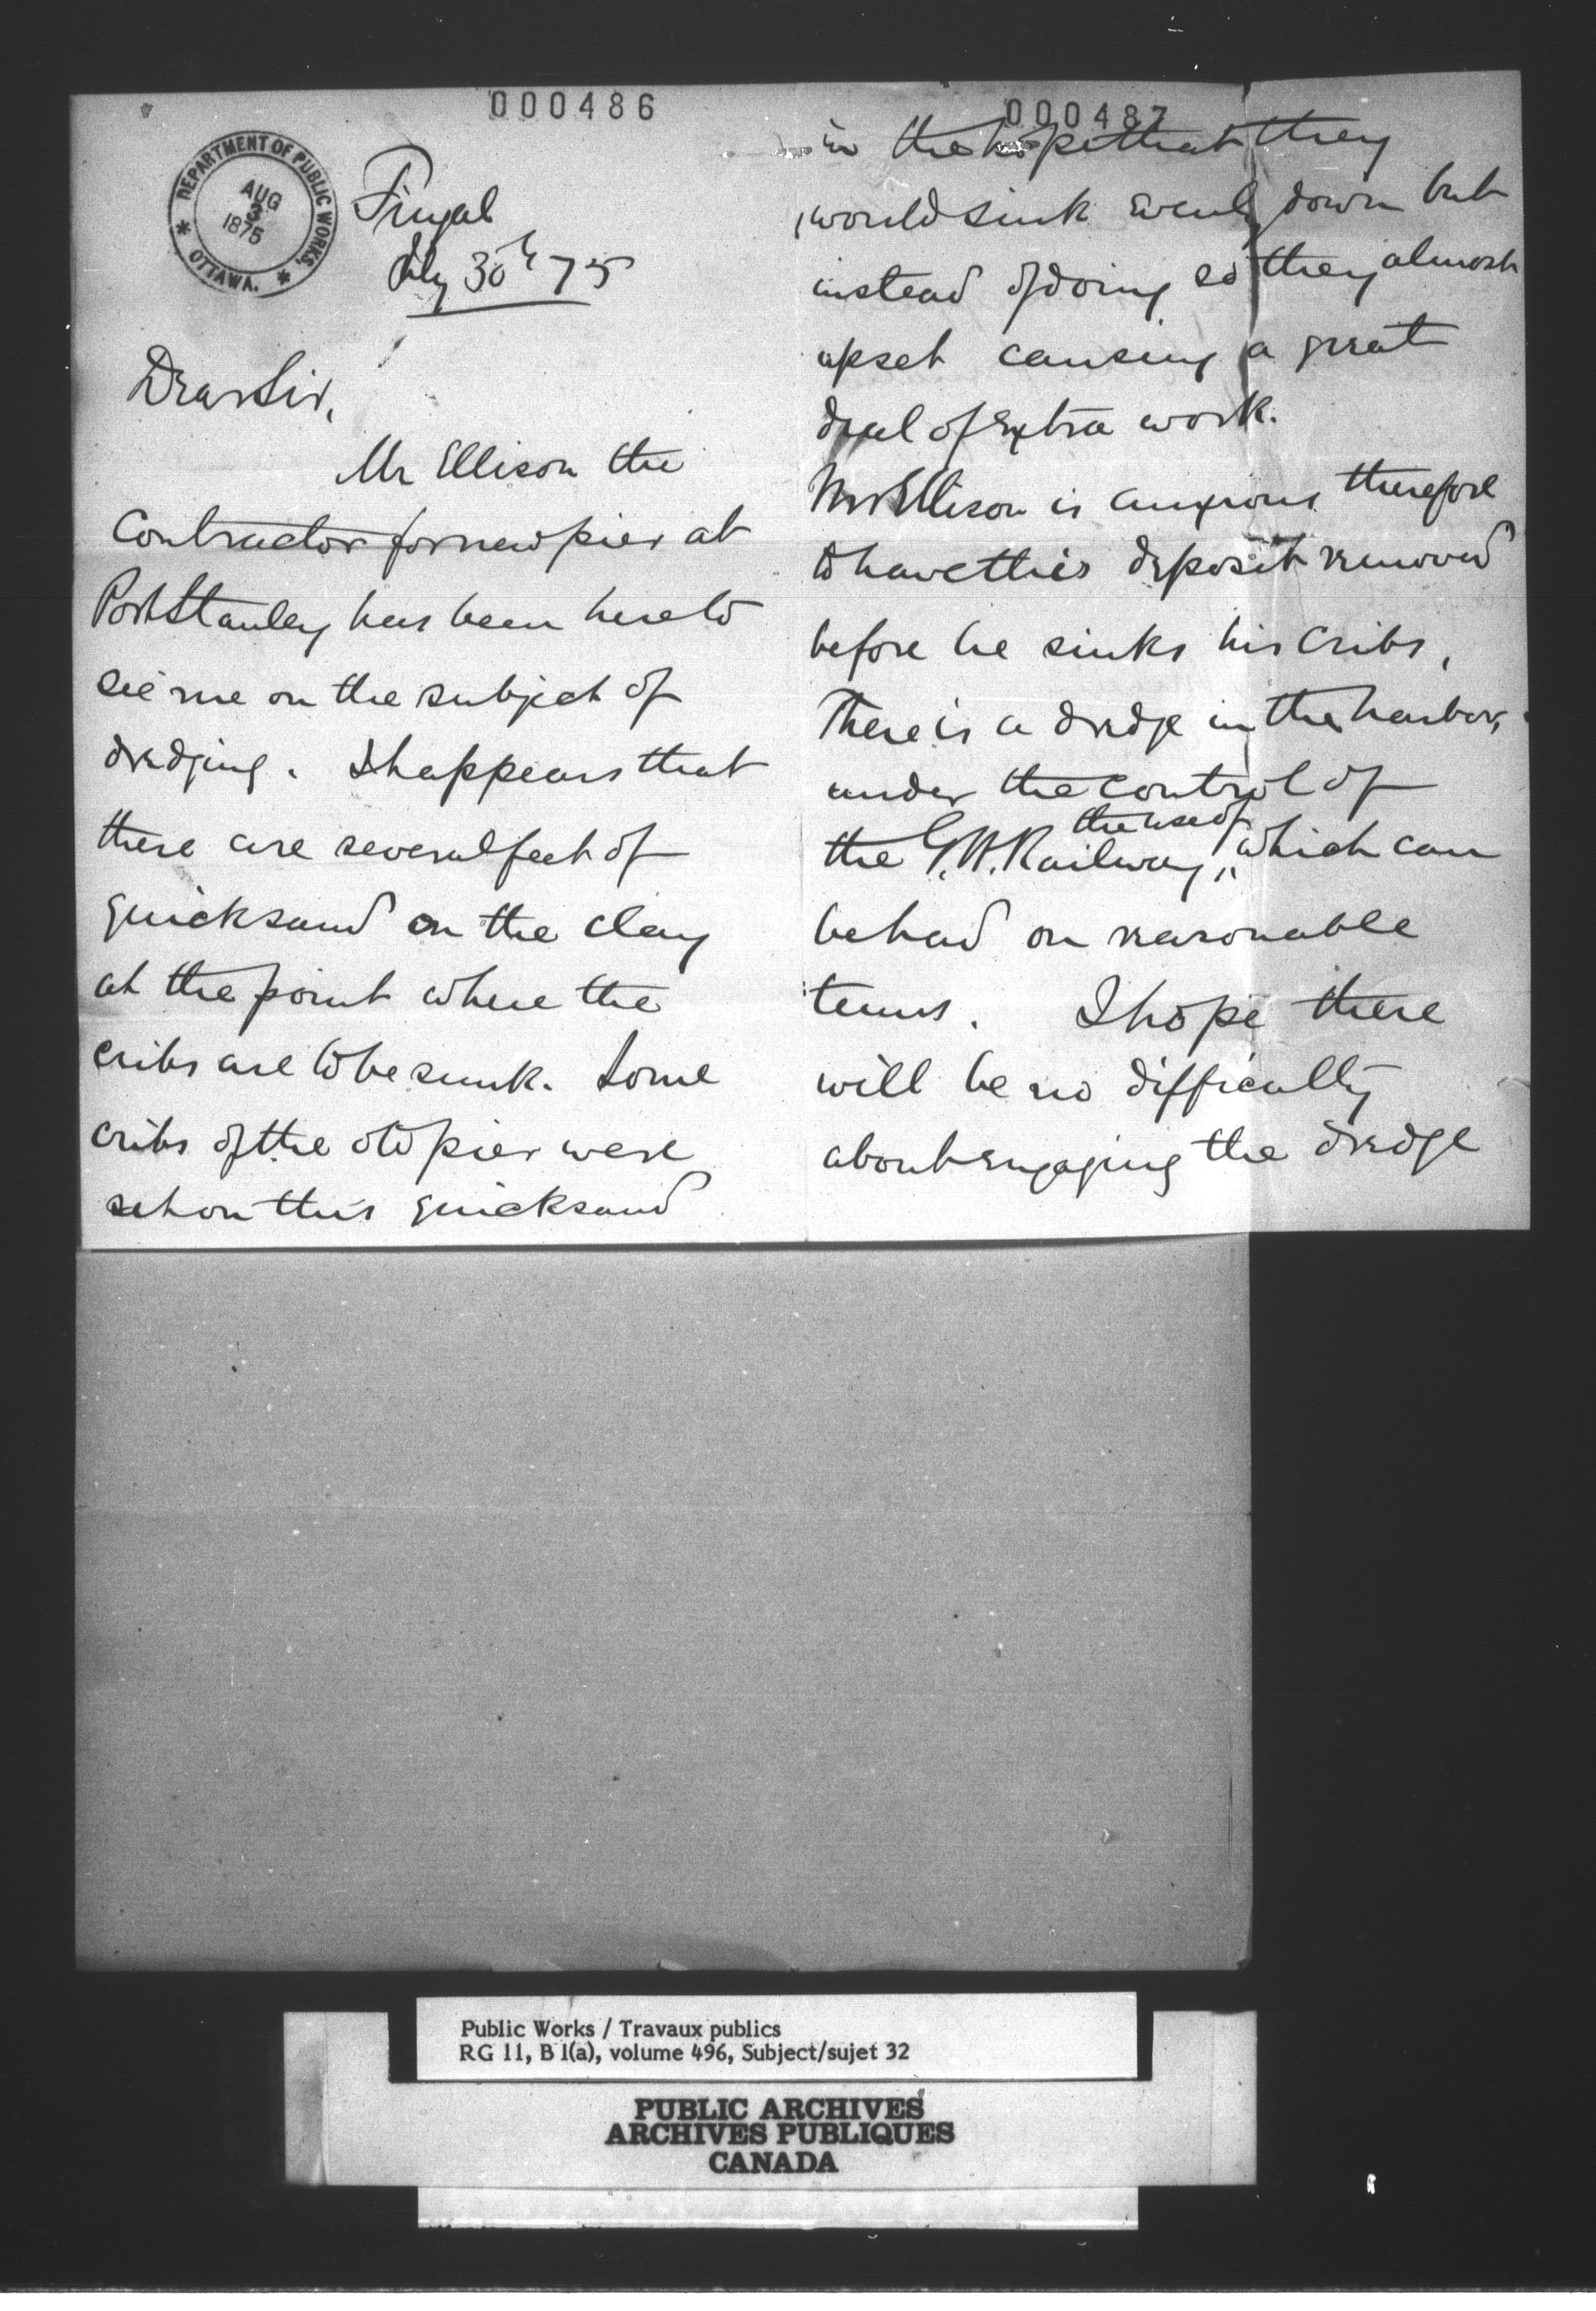 000486
DEPARTMENT OF PUBLIC WORKS.
AUG
3
1875
* OTTAWA. *
Fingal
July 30th 75
Dear Sir,
Mr Ellison the
Contractor for new pier at
Port Stanley has been here to
see me on the subject of
dredging. It appears that
there are several feet of
quicksand on the clay
at the point where the
cribs are to be sunk. Some
cribs of the old pier were
set on this quicksand
000487
in the hope that they
would sink evenly down but
instead of doing so they almost
upset causing a great
deal of extra work.
Mr Ellison is anxious therefore
to have this deposit removed
before he sinks his cribs,
There is a dredge in the harbor,
under the control of
the use of
the G.W. Railway, which can
be had on reasonable
terms. I hope there
will be no difficulty
about engaging the dredge
Public Works / Travaux publics
RG 11, B 1(a), volume 496, Subject/sujet 32
PUBLIC ARCHIVES
ARCHIVES PUBLIQUES
CANADA